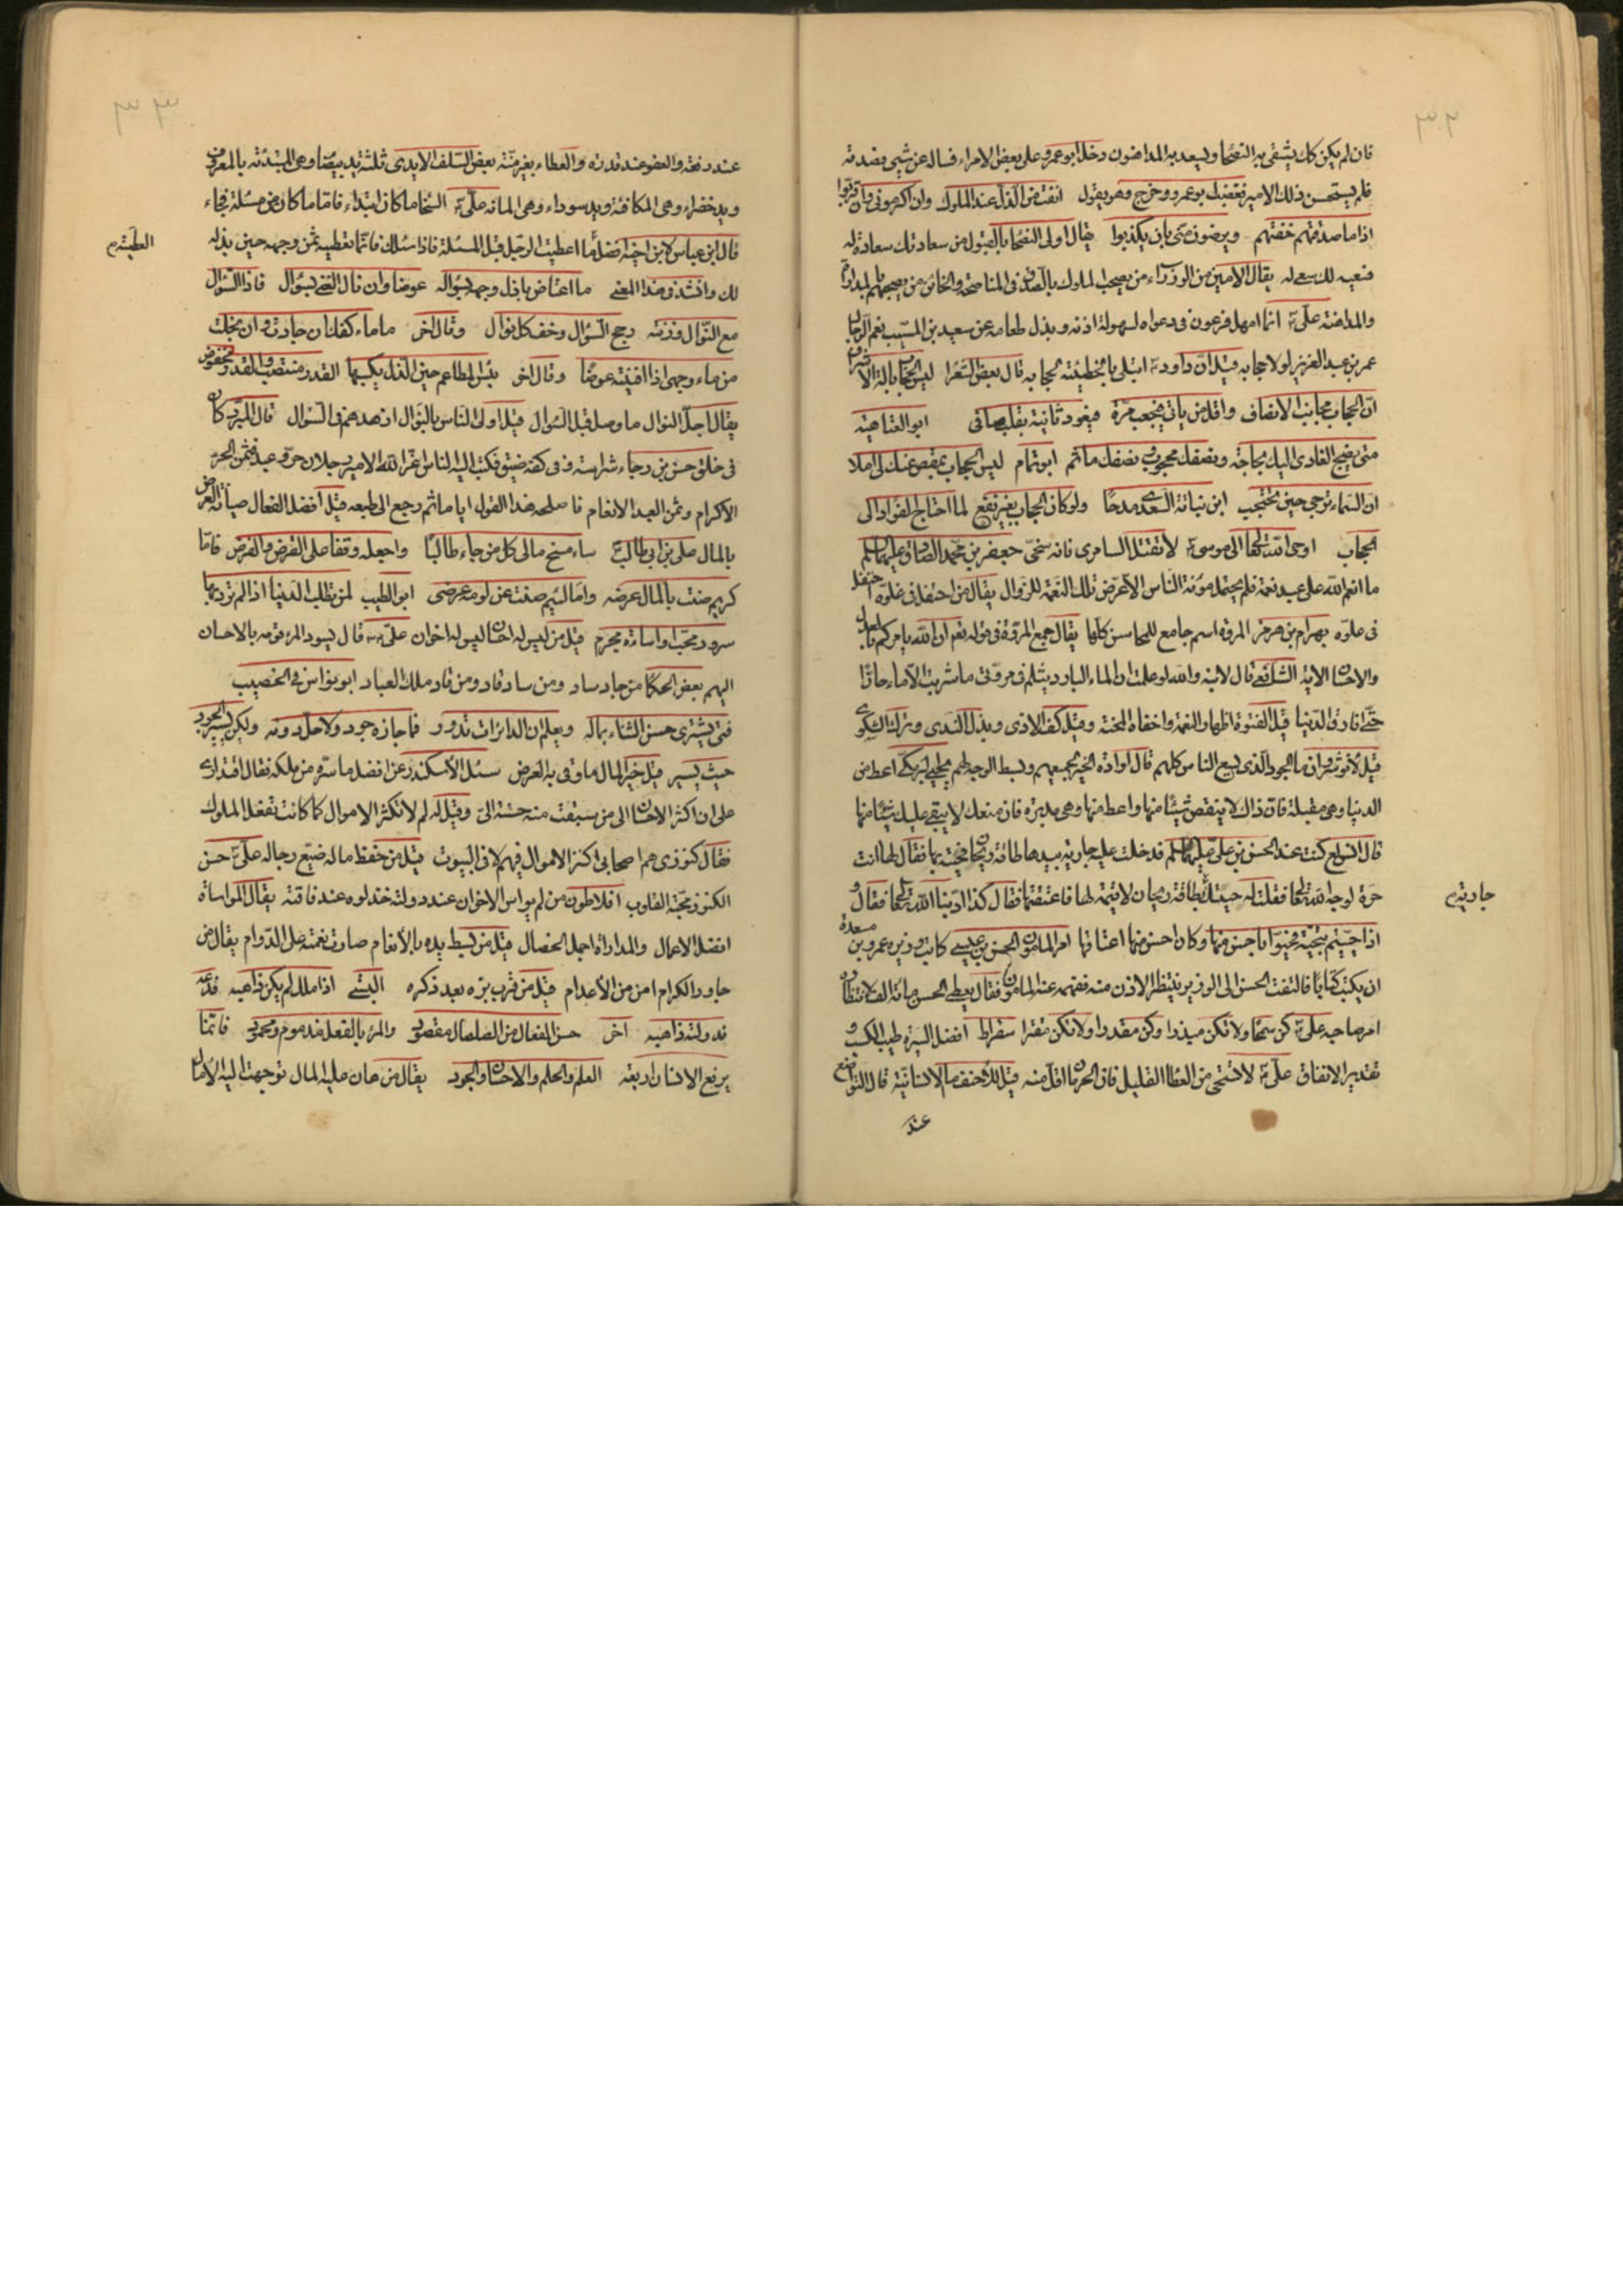 ٣٢
فان لم يكن كك يشقى به النصحا ويسعد به المداهنون دخل ابو عمرو على بعض الامراء فساله عن شيئ فصدقه
فلم يستحسن ذلك الامير فغضب ابو عمرو وخرج وهو يقول انفت من الذل عند الملوك وان اكرموني وان قربوا
اذا ما صدقتهم خفتهم ويرضون منى بان يكذبوا يقال اولى النصحا بالقبول من سعادتك سعادة له
فنعيه لك سعى له يقال الامين من الوزراء من يصحب الملوك بالصدق في المناصحة والخائن من يصحبهم
والمداهنة على انما امهل فرعون في دعواه لسهولة اذنه وبذل طعامه عن سعيد بن المسيب نعم الرجل
عمر بن عبد العزيز لولا حجابه قيل ان داود ابتلى بالخطيئة لحجابه قال بعض الشعرا ليس الحجاب بالة الاشراف
ان الحجاب مجانب الانصاف واقل من ياتى فيحجب مرة فيعود ثانية بقلب صافى ابو العتاهيه
متى ينجح الغادى اليك بحاجة ونصفك محجوب ونصفك ما ثم ابو تمام ليس الحجاب بمقص عنك لى املا
ان السماء ترجى حين تحتجب ابن نباتة السعدى مدحا ولو كان الحجاب بغير نفع لما احتاج الفؤاد الى
الحجاب اوحى الله تعالى الى موسى لا تقتل السامرى فانه سخى جعفر بن محمد الصادق عليهما السلم
ما انعم الله على عبد نعمة فلم يحتمل مؤنة الناس الا عرض تلك النعمة للزوال يقال من احتفل فى غلوه احتفل
فى علوه بهرام بن هرمز المروة اسم جامع للمحاسن كلها يقال جمع المروة فى قوله نعم ان الله يامركم بالعدل
والاحسان الاية الشافعى قال لابنه والله لو علمت ان الماء البارد يثلم فى مروتى ما شربت الا ماء حارا
حتى افارق الدنيا قيل الفتوة اظهار النعمة واخفاء المحنة وقيل كف الاذى وبذل الندى وترك الشكوى
قيل لانوشروان ما الجود الذى يسع الناس كلهم قال ارادة الخير لجميعهم وبسط الوجه لهم يحيى البرمكى اعط من
الدنيا وهى مقبلة فان ذلك لا ينقص شيئا منها واعط منها وهى مدبرة فان منعك لا يبقى عليك شيئا منها
قال كنت عند الحسن بن على عليهما السلم فدخلت عليه جارية بيدها طاقة ريحان فحيته بها فقال لها انت
حرة لوجه الله تعالى فقلت له حيتك بطاقة ريحان لا قيمة لها فاعتقتها فقال كذا ادبنا الله تعالى فقال و
جاريه
اذا حييتم بتحية فحيوا باحسن منها وكان احسن منها اعتاقها امر المامون الحسن بن عيسى كاتب وزيره عمرو بن مسعدة
ان يكتب كتابا فالتفت الحسن الى الوزير ينتظر الاذن منه ففهمه عند المامون فقال يعطى الحسن مائة الف لانتظاره
امر صاحبه على كن سمحا ولا تكن مبذرا وكن مقدرا ولا تكن مقترا سقراط افضل السيرة طيب الكسب و
تقدير الانفاق على لا تستحى من العطا القليل فان الحرمان اقل منه قيل للاحنف ما الانسانية قال التواضع
عند
٣٣
عند رفعة والعفو عند قدرة والعطاء بغير منة بعض السلف الايدى ثلثة يد بيضا وهى المبتدئة بالمعروف
ويد خضراء وهى المكافئة ويد سوداء وهى المانه على السخا ما كان ابتداء فاما ما كان من مسئلة فحياء
قال ابن عباس لابن اخيه افضل ما اعطيت الرجل قبل المسئلة فاذا سئلك فانما تعطيه ثمن وجهه حين بذله
العطية
لك وانشد فى هذا المعنى ما اعتاض باذل وجهه بسؤاله عوضا وان نال الغنى بسؤال فاذا السؤال
مع النوال وزنته رجح السؤال وخف كل نوال وقال اخر ما ماء كفك ان جادت وان بخلت
من ماء وجهى اذا افنيته عوضا وقال اخر بئس المطاعم حين الذل يكسبها القدر منتصب والقدر مخفوض
يقال اجل النوال ما وصل قبل السؤال قيل اولى الناس بالنوال ازهدهم فى السؤال قال المبرد كان
فى خلق حسن بن رجاء شراسة وفى كفه ضيق فكتب اليه الناس اعز الله الامير رجلان حر وعبد فثمن الحر
الاكرام وثمن العبد الانعام فاصلحه هذا القول اياما ثم رجع الى طبعه قيل افضل الفعال صيانة العرض
بالمال على بن ابى طالب سامنح مالى كل من جاء طالبا واجعله وقفا على القرض والفرض فاما
كريم صنت بالمال عرضه واما لئيم صنت عن لومه عرضى ابو الطيب لمن تطلب الدنيا اذا لم ترد بها
سرور محب او اساءة مجرم قيل من ليس له احسان ليس له اخوان على قال يسود المرء قومه بالاحسان
اليهم بعض الحكما من جاد ساد ومن ساد قاد ومن قاد ملك العباد ابو نواس فى الخصيب
فتى يشترى حسن الثناء بماله ويعلم ان الدائرات تدور فما جازه جود ولا حل دونه ولكن يسير الجود
حيث يسير قيل خير المال ما وقى به العرض سئل الاسكندر عن افضل ما سره من ملكه فقال اقتدارى
على ان اكثر الاحسان الى من سبقت منه حسنة الى وقيل له لم لا تكثر الاموال كما كانت تفعل الملوك
فقال كنوزى هم اصحابى اكنز الاموال فيهم لا فى البيوت قيل من حفظ ماله ضيع رجاله على حسن
الكنوز محبة القلوب افلاطون من لم يواس الاخوان عند دولته خذلوه عند فاقته يقال المواساة
افضل الاعمال والمداراة اجمل الخصال قيل من بسط يده بالانعام صارت نعمته على الدوام يقال من
جاور الكرام امن من الاعدام قيل من قرب بره بعد ذكره البستى اذا ملك لم يكن ذاهبه فدعه
فدولته ذاهبه اخر حسن الفعال من الصلصال مقصود والمرء بالفعل مذموم ومحمود فانما
يرفع الانسان اربعة العلم والحلم والاحسان والجود يقال من هان عليه المال توجهت اليه الامال